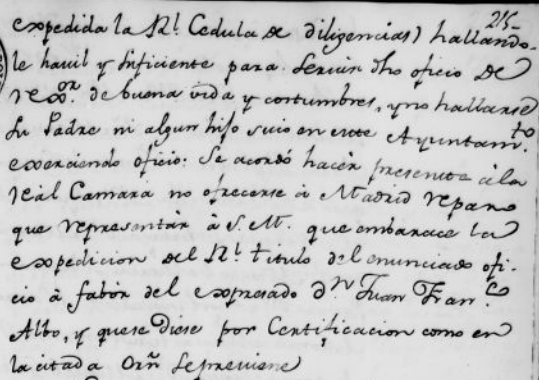 215-
expedida la Rl. Cedula de diligencias) hallando-
le havil y suficiente para servir dho oficio de
rexor. de buena vida y costumbres, y no hallarse
su Padre ni algun hijo suio en este Ayuntamto.
exerciendo oficio: Se acordó hacer presente à la
real Camara no ofrecerse à Madrid reparo
que representar à S. M. que embarace la
expedicion del Rl. titulo del enunciado ofi-
cio à fabor del expresado Dn. Juan Franco.
Albo, y que se diese por Certificacion como en
la citada orñ se previene